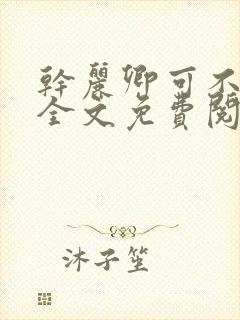 幹麗卿可不
全文免費閱
沐子笙